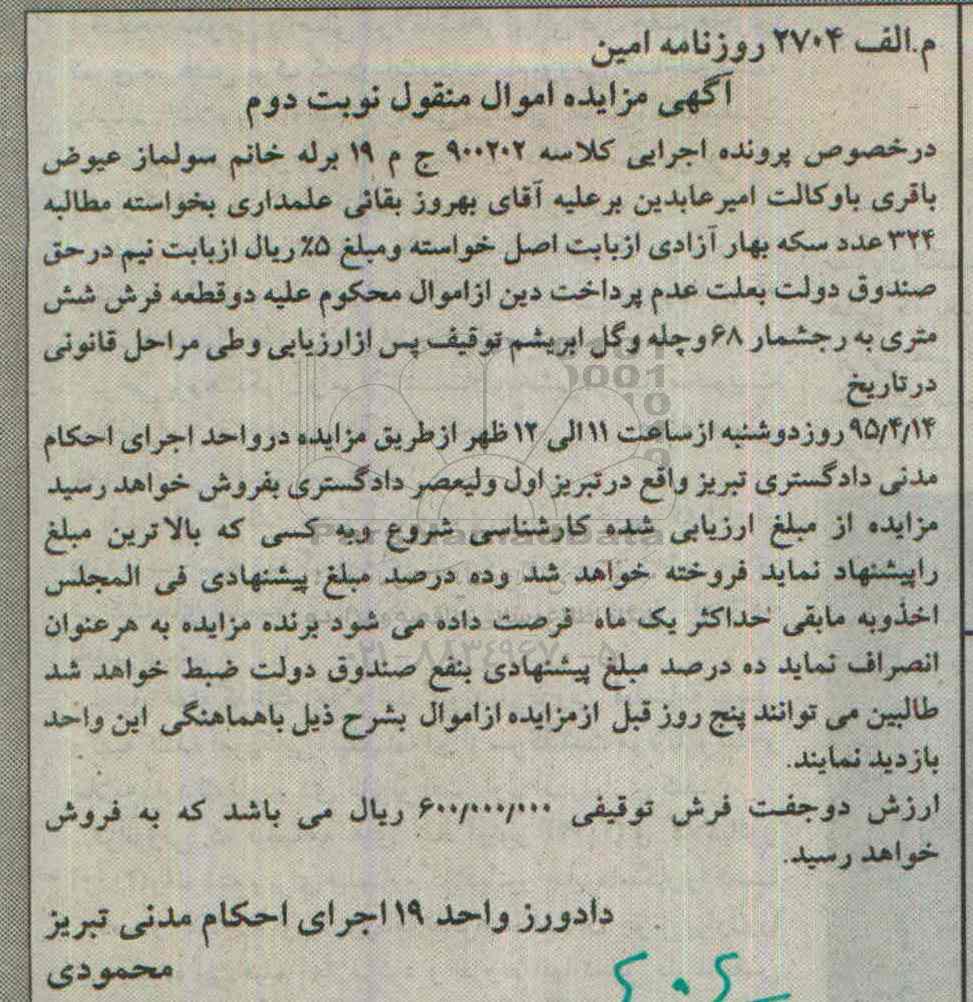 م.الف ۲۷۰۴ روزنامه امین
آگهی مزایده اموال منقول نوبت دوم
درخصوص پرونده اجرایی کلاسه ۹۰۰۲۰۲ ج م ۱۹ برله خانم سولماز عیوض
باقری باوکالت امیرعابدین برعلیه آقای بهروز بقائی علمداری بخواسته مطالبه
۳۲۴ عدد سکه بهار آزادی ازبابت اصل خواسته ومبلغ ۵٪ ریال ازبابت نیم درحق
صندوق دولت بعلت عدم پرداخت دین ازاموال محکوم علیه دوقطعه فرش شش
متری به رجشمار ۶۸ وچله وگل ابریشم توقیف پس ازارزیابی وطی مراحل قانونی
درتاریخ
۹۵/۴/۱۴ روزدوشنبه ازساعت ۱۱ الی ۱۲ ظهر ازطریق مزایده درواحد اجرای احکام
مدنی دادگستری تبریز واقع درتبریز اول ولیعصر دادگستری بفروش خواهد رسید
مزایده از مبلغ ارزیابی شده کارشناسی شروع وبه کسی که بالاترین مبلغ
راپیشنهاد نماید فروخته خواهد شد وده درصد مبلغ پیشنهادی فی المجلس
اخذوبه مابقی حداکثر یک ماه فرصت داده می شود برنده مزایده به هرعنوان
انصراف نماید ده درصد مبلغ پیشنهادی بنفع صندوق دولت ضبط خواهد شد
طالبین می توانند پنج روز قبل ازمزایده ازاموال بشرح ذیل باهماهنگی این واحد
بازدید نمایند.
ارزش دوجفت فرش توقیفی ۶۰۰/۰۰۰/۰۰۰ ریال می باشد که به فروش
خواهد رسید.
دادورز واحد ۱۹ اجرای احکام مدنی تبریز
محمودی